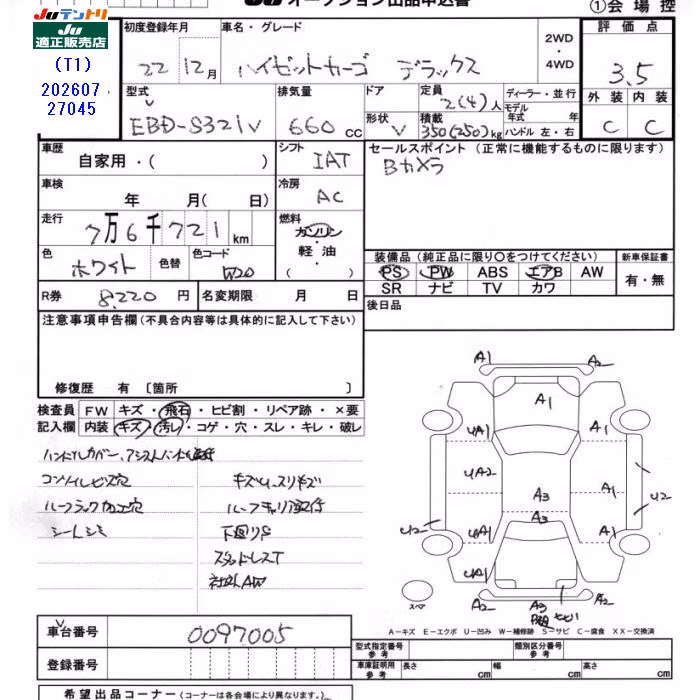 JUテントリ
JU
適正販売店
(T1)
202607
27045
JU オークション出品申込書
①会場控
初度登録年月
22 12月
車名・グレード
ハイゼットカーゴ デラックス
2WD
・
4WD
評価点
3.5
外装 内装
C C
型式
EBD-S321V
排気量
660 cc
ドア
形状 V
定員 2(4)人
積載 350(250)kg
ディーラー・並行
モデル
年式 年
ハンドル 左・右
車歴
自家用・( )
シフト
IAT
セールスポイント(正常に機能するものに限ります)
Bカメラ
車検
年 月( 日)
冷房
AC
走行
7万6千721km
燃料
ガソリン
軽・油
( )
色
ホワイト
色替
色コード
W20
装備品(純正品に限り〇をつけてください)
PS PW ABS エアB AW
SR ナビ TV カワ
新車保証書
有・無
R券 8,220円
名変期限 月 日
後日品
注意事項申告欄(不具合内容等は具体的に記入して下さい)
修復歴 有〔箇所 〕
検査員
記入欄
FW キズ・飛石・ヒビ割・リペア跡・×要
内装 キズ・汚レ・コゲ・穴・スレ・キレ・破レ
ハンドルカバー、アシストハンドル
コンソイルビス穴
ルーフラック加工穴
シートシミ
キズ、スリキズ
ルーフキャリア
下廻りS
スタッドレスT
社外AW
A1
A2
A1
UA1
A1
UA2
A3
A1
U2
A3
U2
UA1
A1
UA1
A2
A3
A2
スペア
A-キズ E-エクボ U-凹み W-補修跡 S-サビ C-腐食 XX-交換済
車台番号
0097005
登録番号
型式指定番号
参考
類別区分番号
参考
車庫証明用
参考
長さ cm
幅 cm
高さ cm
希望出品コーナー(コーナーは各会場により異なります。)